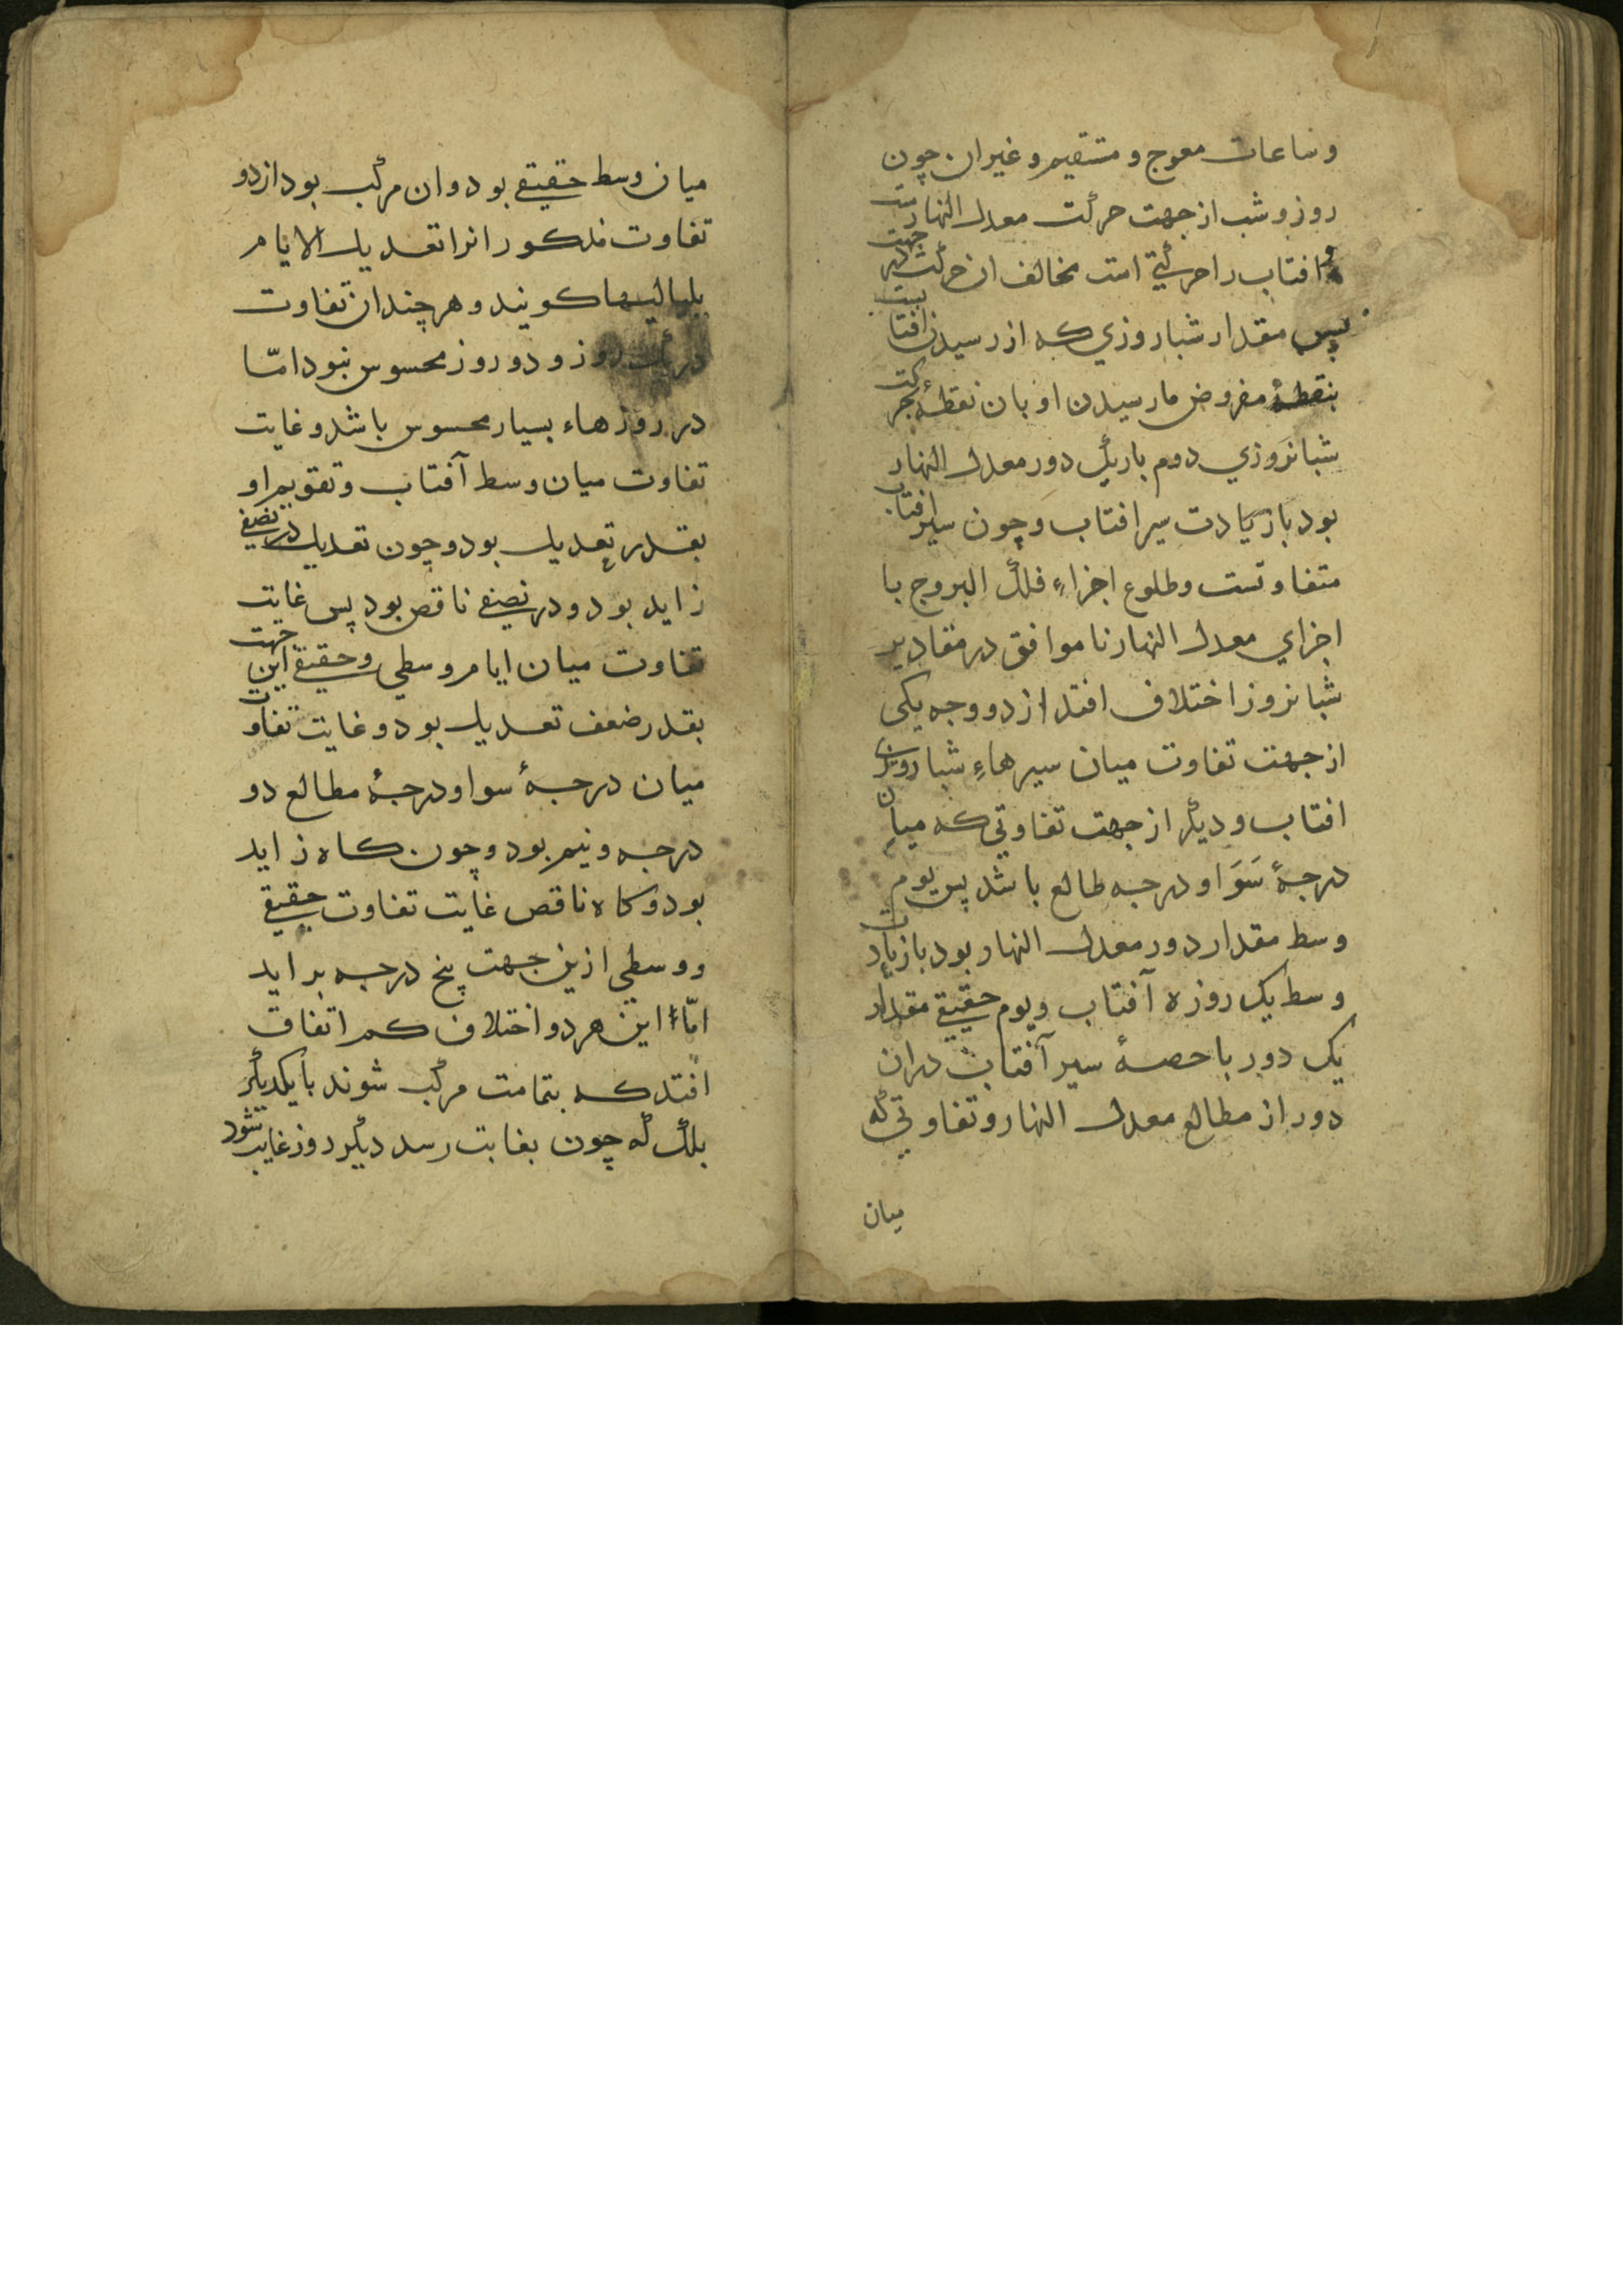 وساعات معوج و مستقیم و غیر ان چون
روز و شب از جهت حرکت معدل النهارست
و افتاب را حرکتی است مخالف ان حرکت جهت
پس مقدار شباروزی که از رسیدن افتا
بنقطهٔ مفروض مارسیدن او بان نقطهٔ حرکت
شبانروزی دوم باریک دور معدل النهار
بود بازیادت سیر افتاب و چون سیر افتاب
متفاوتست و طلوع اجزاءِ فلک البروج با
اجزای معدل النهار ناموافق در مقادیر
شبانروز اختلاف افتد از دو وجه یکی
از جهت تفاوت میان سیرهاءِ شباروزی
افتاب و دیگر از جهت تفاوتی که میان
درجهٔ سَوَا و درجه طالع باشد پس یوم
وسط مقدار دور معدل النهار بود بازیادت
وسط یک روزه آفتاب و یوم حقیقی مقدار
یک دور با حصهٔ سیر آفتاب دران
دور از مطالع معدل النهار و تفاوتی که
میان
میان وسط حقیقی بود و ان مرکب بود از دو
تفاوت مذکور انرا تعدیل الایام
بلیالیها کویند و هر چند ان تفاوت
در یک روز و دو روز محسوس نبود امّا
در روزهاء بسیار محسوس باشد و غایت
تفاوت میان وسط آفتاب و تقویم او
بقدر تعدیل بود و چون تعدیل در نصفی
زاید بود و در نصفی ناقص بود پس غایت
تفاوت میان ایام وسطی و حقیقی این جهت
بقدر ضعف تعدیل بود و غایت تفاوت
میان درجهٔ سوا و درجهٔ مطالع دو
درجه و نیم بود و چون کاه زاید
بود و کاه ناقص غایت تفاوت حقیقی
و وسطی ازین جهت پنج درجه بر اید
امّا این هر دو اختلاف کم اتفاق
افتد که بتمامت مرکب شوند با یکدیگر
بلک که چون بغایت رسد دیگر روز غایب شود